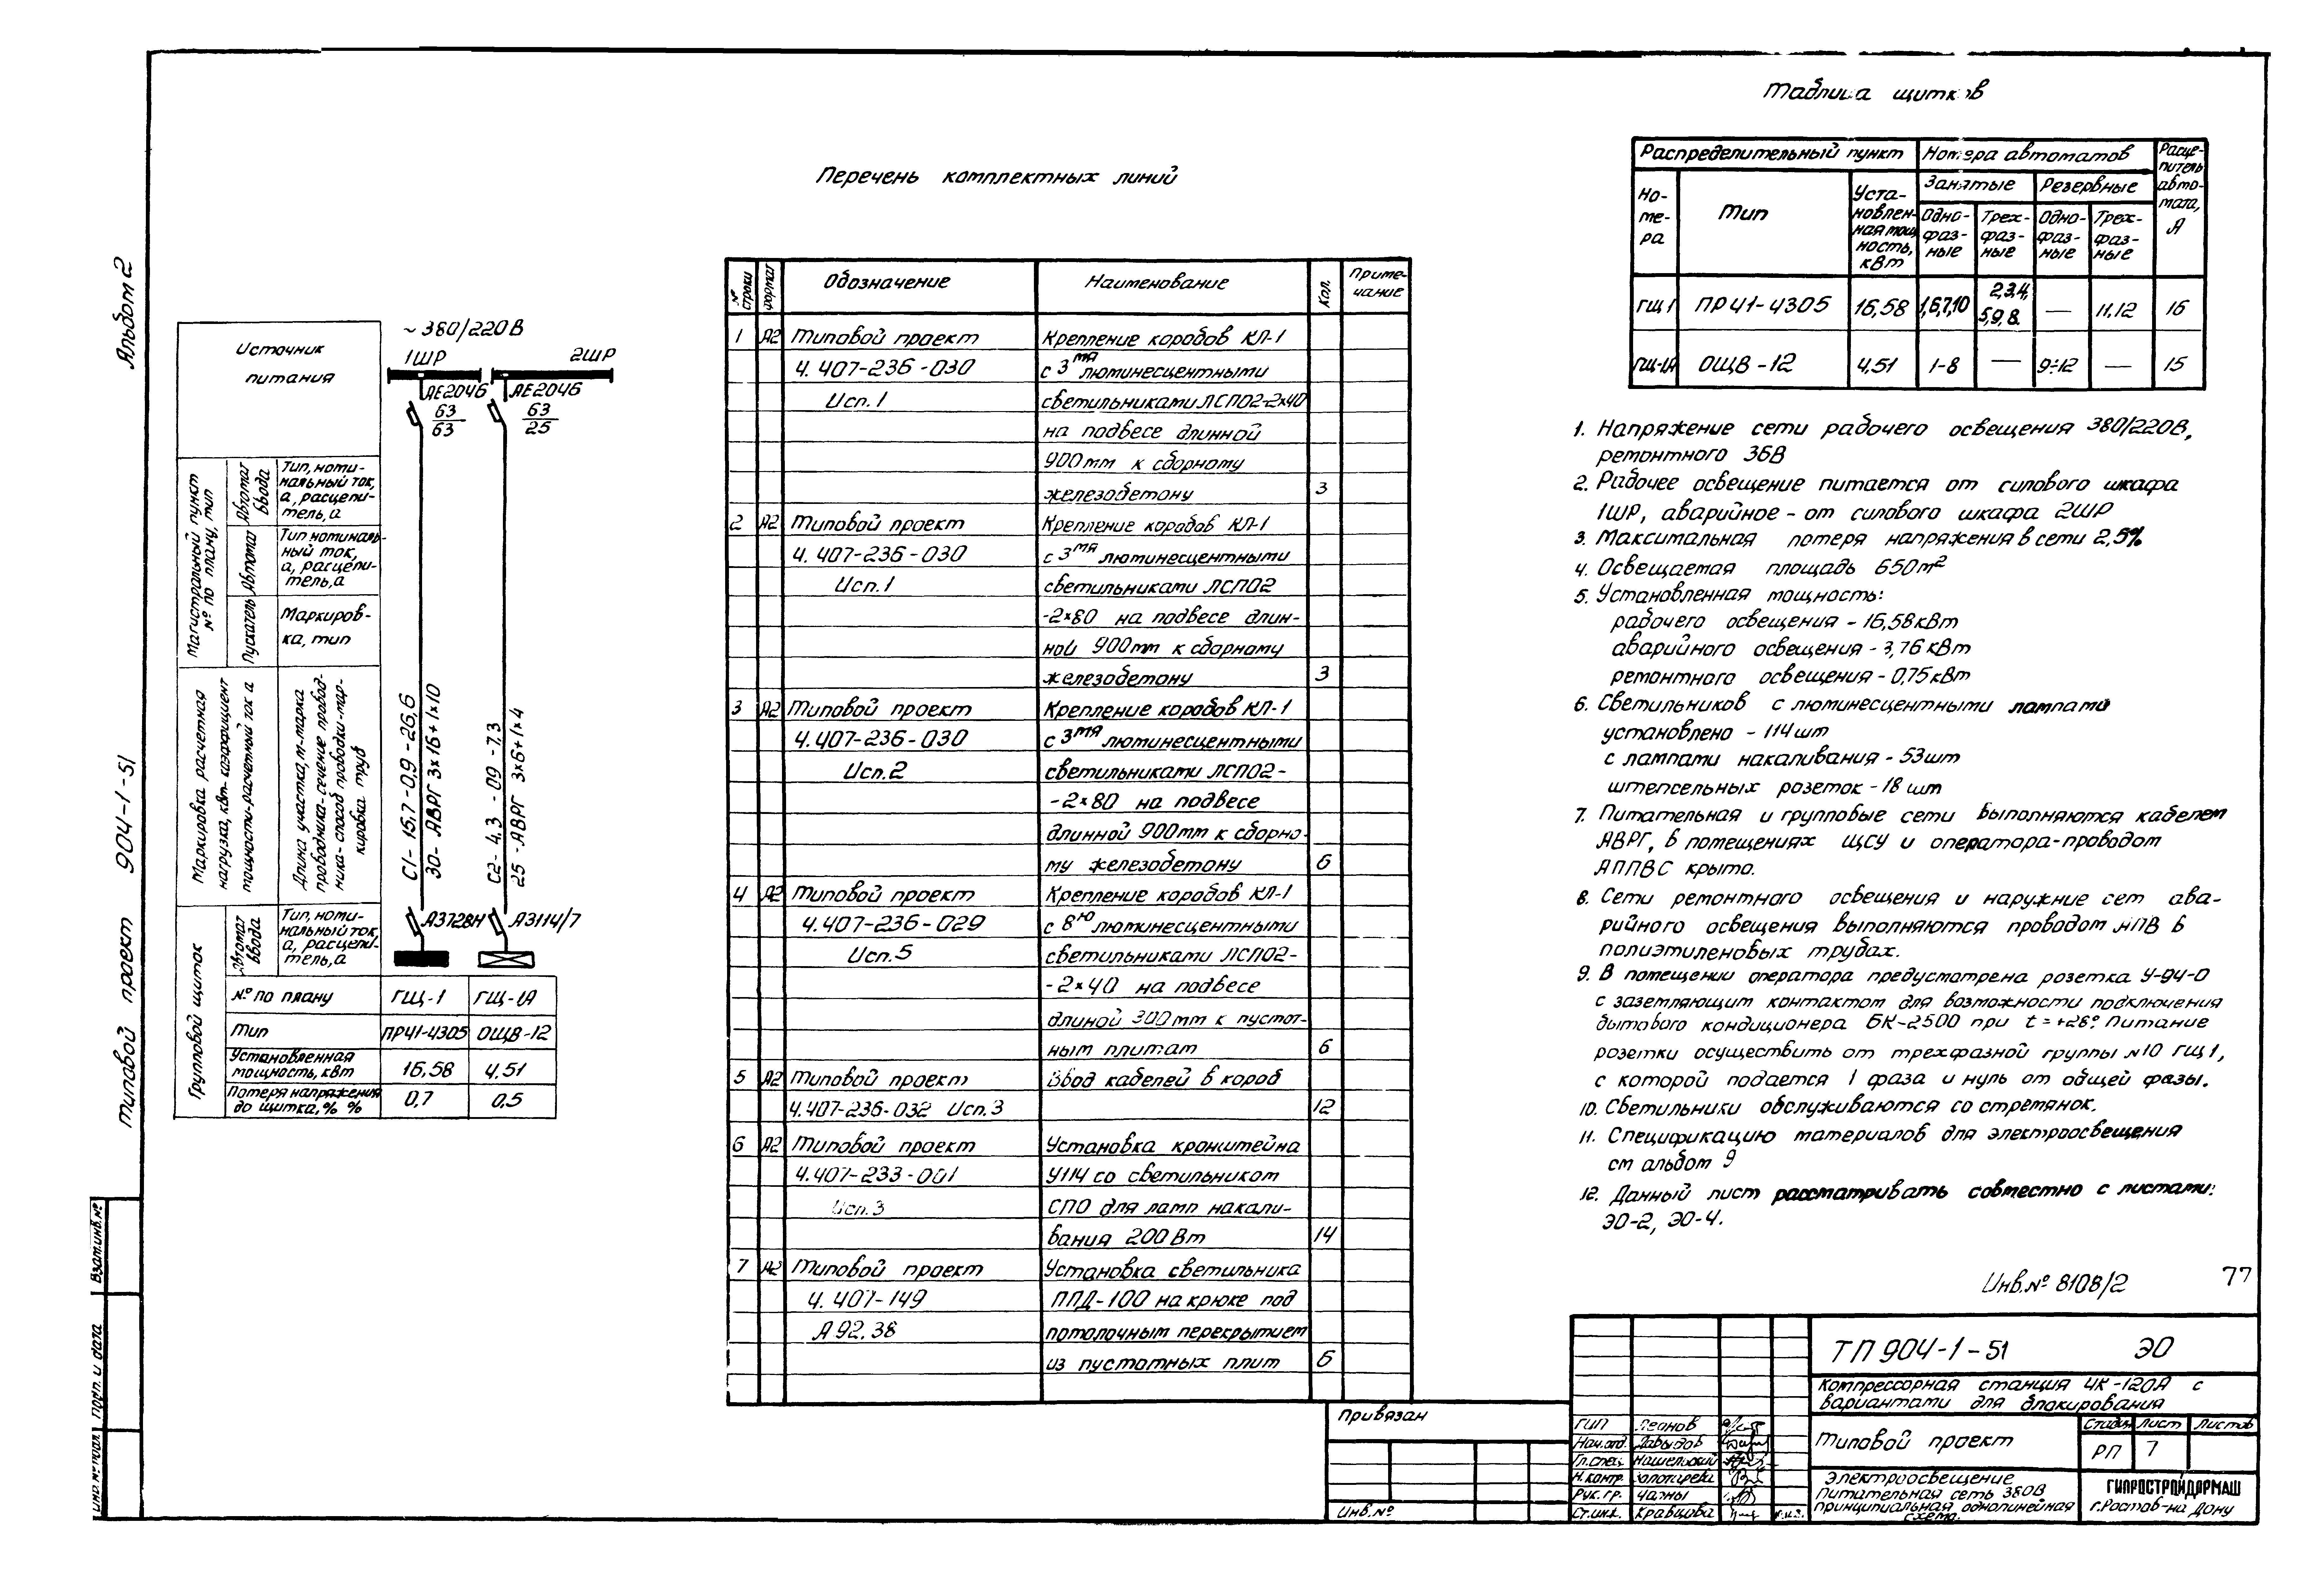 Альбом 2
Типовой проект 904-1-51
Взам.инв.№
Подп. и дата
Инв.№ подл.
Источник
питания
~380/220В
1ШР
2ШР
АЕ2046
63
63
АЕ2046
63
25
Магистральный пункт
№ по плану, тип
Автомат
ввода
Тип, номи-
нальный ток,
а, расцепи-
тель, а
Автомат
Тип номиналь-
ный ток,
а, расцепи-
тель, а
Пускатель
Маркиров-
ка, тип
Маркировка расчетная
нагрузка, квт-коэффициент
мощности-расчетный ток а
Длина участка, м-марка
проводника-сечение провод-
ника-способ проводки-мар-
кировка труб
С1-15,7-0,9-26,6
30-АВРГ 3×16+1×10
С2-4,3-0,9-7,3
25-АВРГ 3×6+1×4
Групповой щиток
Автомат
ввода
Тип, номи-
нальный ток,
а, расцепи-
тель, а
А3728Н
А3114/7
№ по плану
ГЩ-1
ГЩ-1А
Тип
ПР41-4305
ОЩВ-12
Установленная
мощность, квт
16,58
4,51
Потеря напряжения
до щитка, % %
0,7
0,5
Перечень комплектных линий
№ строки
Формат
Обозначение
Наименование
Кол.
Приме-
чание
1 А2 Типовой проект Крепление коробов КЛ-1
4.407-236-030 с 3мя люминесцентными
Исп.1 светильниками ЛСП02-2×40
на подвесе длинной
900мм к сборному
железобетону 3
2 А2 Типовой проект Крепление коробов КЛ-1
4.407-236-030 с 3мя люминесцентными
Исп.1 светильниками ЛСП02
-2×80 на подвесе длин-
ной 900мм к сборному
железобетону 3
3 А2 Типовой проект Крепление коробов КЛ-1
4.407-236-030 с 3мя люминесцентными
Исп.2 светильниками ЛСП02-
-2×80 на подвесе
длинной 900мм к сборно-
му железобетону 6
4 А2 Типовой проект Крепление коробов КЛ-1
4.407-236-029 с 8ю люминесцентными
Исп.5 светильниками ЛСП02-
-2×40 на подвесе
длиной 300мм к пустот-
ным плитам 6
5 А2 Типовой проект Ввод кабелей в короб
4.407-236-032 Исп.3 12
6 А2 Типовой проект Установка кронштейна
4.407-233-001 У114 со светильником
Исп.3 СПО для ламп накали-
вания 200Вт 14
7 А2 Типовой проект Установка светильника
4.407-149 ППД-100 на крюке под
А 92.38 потолочным перекрытием
из пустотных плит 6
Таблица щитков
Распределительный пункт
Номера автоматов
Расце-
питель
авто-
мата,
А
Но-
ме-
ра
Тип
Уста-
новлен-
ная мощ
ность,
кВт
Занятые
Резервные
Одно-
фаз-
ные
Трех-
фаз-
ные
Одно-
фаз-
ные
Трех-
фаз-
ные
ГЩ1 ПР41-4305 16,58 1,6,7,10 2,3,4, 5,9,8. — 11,12 16
ГЩ-1А ОЩВ-12 4,51 1-8 — 9÷12 — 15
1. Напряжение сети рабочего освещения 380/220В,
ремонтного 36В
2. Рабочее освещение питается от силового шкафа
1ШР, аварийное - от силового шкафа 2ШР
3. Максимальная потеря напряжения в сети 2,5%
4. Освещаемая площадь 650м²
5. Установленная мощность:
рабочего освещения - 16,58кВт
аварийного освещения - 3,76кВт
ремонтного освещения - 0,75кВт
6. Светильников с люминесцентными лампами
установлено - 114шт
с лампами накаливания - 53шт
штепсельных розеток - 18шт
7. Питательная и групповые сети выполняются кабелем
АВРГ, в помещениях ЩСУ и оператора-проводом
АППВС крыто.
8. Сети ремонтного освещения и наружние сет ава-
рийного освещения выполняются проводом АПВ в
полиэтиленовых трубах.
9. В помещении оператора предусмотрена розетка У-94-О
с заземляющим контактом для возможности подключения
бытового кондиционера БК-2500 при t=+26°. Питание
розетки осуществить от трехфазной группы №10 ГЩ1,
с которой подается 1 фаза и нуль от общей фазы.
10. Светильники обслуживаются со стремянок.
11. Спецификацию материалов для электроосвещения
см альбом 9
12. Данный лист рассматривать совместно с листами:
ЭО-2, ЭО-4.
Инв.№ 8108/2
77
Привязан
Инв.№
ГИП Леонов
Нач.отд. Давыдов
Гл.спец.
Н.контр.
Рук.гр.
Ст.инж. Кравцова
ТП 904-1-51 ЭО
Компрессорная станция 4К-120А с
вариантами для блокирования
Типовой проект
Стадия Лист Листов
РП 7
Электроосвещение
Питательная сеть 380В
Принципиальная однолинейная
схема.
ГИПРОСТРОЙДОРМАШ
г.Ростов-на Дону